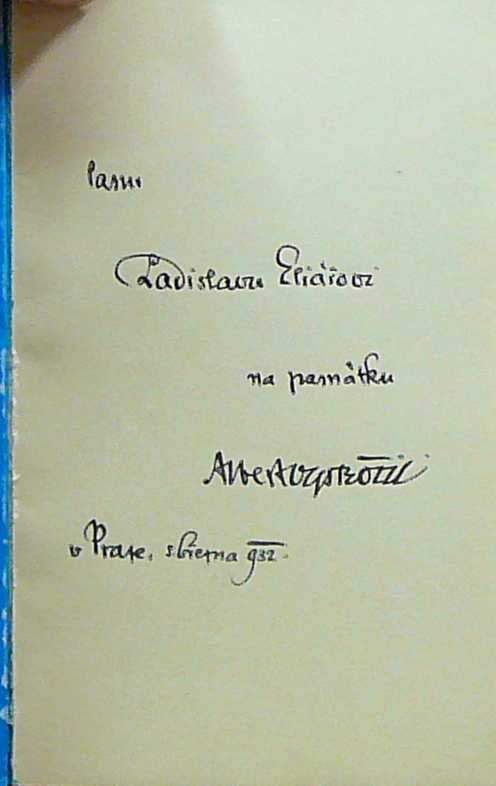 panu
Ladislavu Eliášovi
na památku
Albert Vyskočil
v Praze, s. března 932.